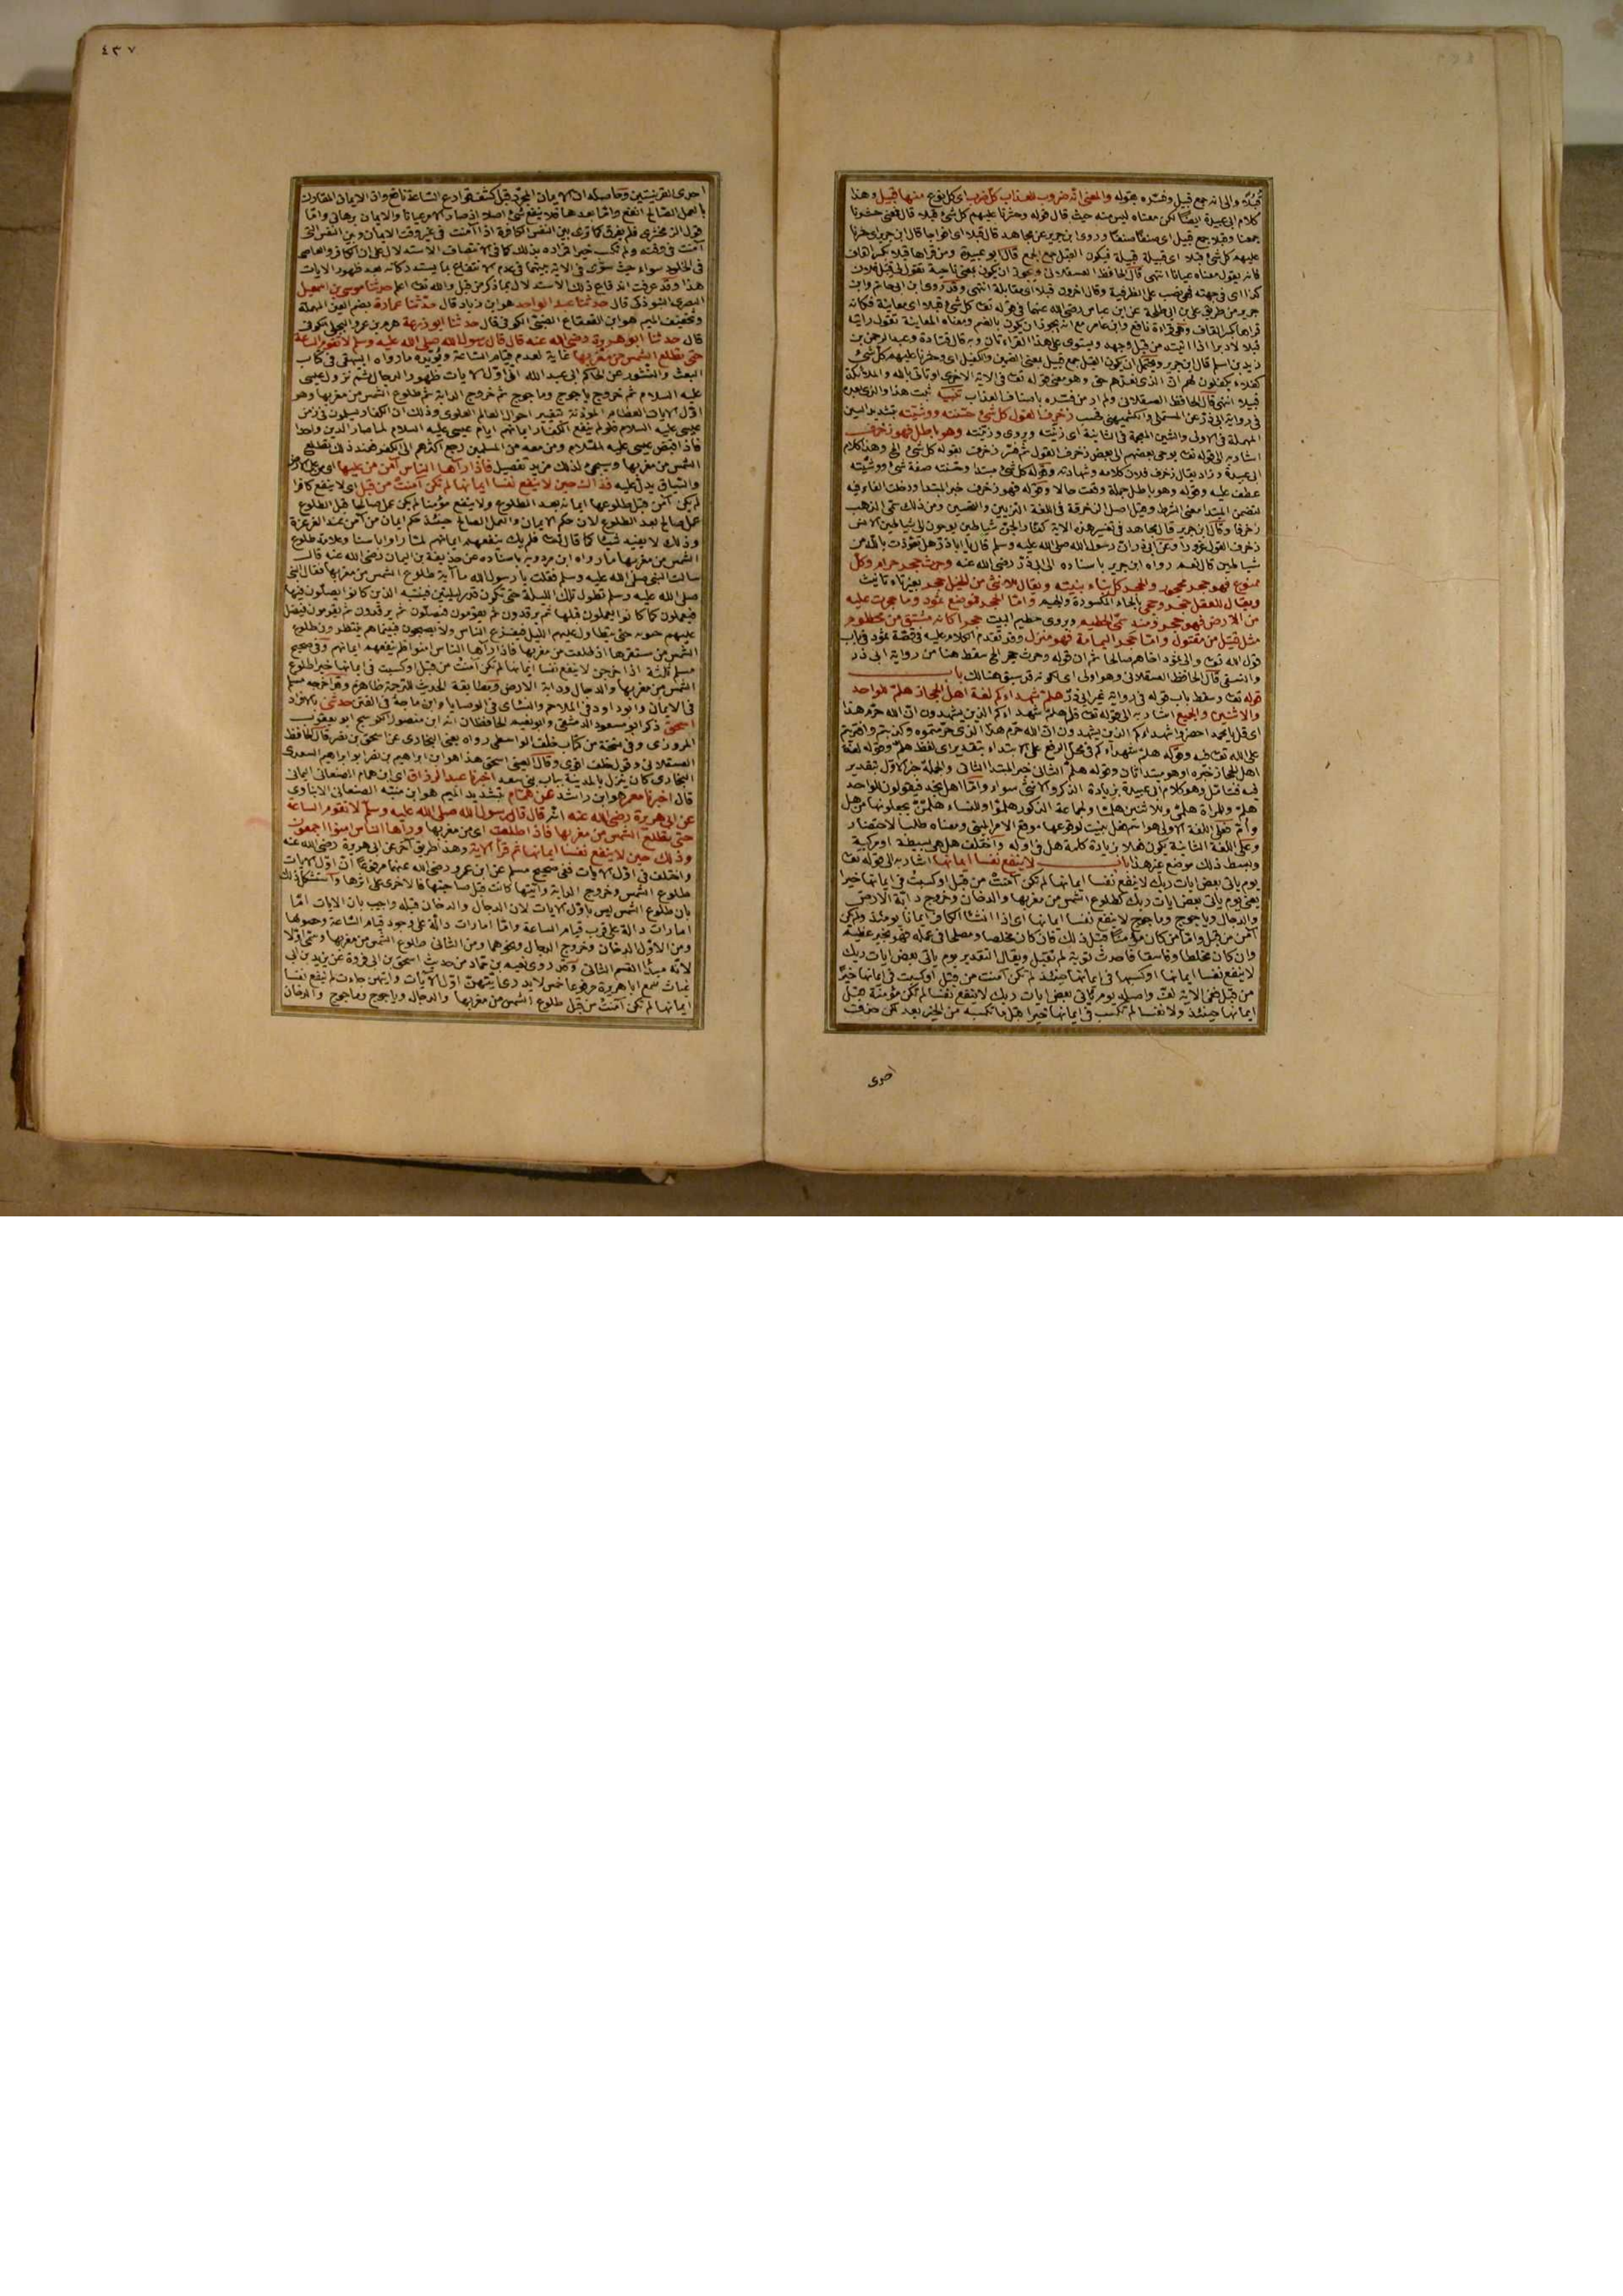 قبيلا والى انه جمع قبيل وفسّره بقوله والمعنى انه ضروب للعذاب كل ضرب اى كل نوع منها قبيل وهذا
كلام ابى عبيدة ايضا لكن معناه ليس منه حيث قال قوله وحشرنا عليهم كل شئ قبلا قال فمعنى حشرنا
جمعنا وقبلا جمع قبيل اى صنفا صنفا وروى ابن جرير عن مجاهد قال قبلا اى افواجا قال ابن جرير اى حشرنا
عليهم كل شئ قبلا اى قبيلة قبيلة فيكون القبل جمع الجمع قال ابو عبيدة ومن قراها قبلا بكسر القاف
فانه يقول معناه عيانا انتهى قال الحافظ العسقلانى ويجوز ان يكون بمعنى ناحية تقول لى قبل فلان
كذا اى فى جهته فهو نصب على الظرفية وقال اخرون قبلا اى مقابلة انتهى وقد روى ابن ابى حاتم وابن
جرير من طريق على بن ابى طلحة عن ابن عباس رضى الله عنهما فى قوله تعا كل شئ قبلا اى معاينة فكانه
قراها بكسر القاف وهى قراءة نافع وابن عامر مع انه يجوز ان يكون بالضم ومعناه المعاينة تقول رايته
قبلا لا دبرا اذا اتيته من قبل وجهه ويستوى على هذا القراءتان وبه قال قتادة وعبد الرحمن بن
زيد بن اسلم قال ابن جرير ويحتمل ان يكون القبل جمع قبيل بمعنى الضمين والكفيل اى وحشرنا عليهم كل شئ
كفلاء يكفلون لهم ان الذى نعدهم حق وهو معنى قوله تعا فى الاية الاخرى او تاتى بالله والملائكة
قبيلا انتهى قال الحافظ العسقلانى ولم ار من فسّره باصناف العذاب تنبيه ثبت هذا والذى بعده
فى رواية ابى ذر عن المستملى والكشميهنى فحسب زخرف القول كل شئ حسّنته ووشّيته بتشديد السين
المهملة فى الاولى والشين المعجمة فى الثانية اى زيّنته ويروى وزيّنته وهو باطل فهو زخرف
اشار به الى قوله تعا يوحى بعضهم الى بعض زخرف القول ثم فسّر زخرف بقوله كل شئ الخ وهذا كلام
ابى عبيدة وزاد يقال زخرف فلان كلامه وشهادته وقوله كل شئ مبتدا وحسّنته صفة شئ ووشّيته
عطف عليه وقوله وهو باطل جملة وقعت حالا وقوله فهو زخرف خبر المبتدا ودخلت الفاء فيه
لتضمن المبتدا معنى الشرط وقيل اصل الزخرفة فى اللغة التزيين والتحسين ومن ذلك سمّى الذهب
زخرفا وقال ابن جرير قال مجاهد فى تفسير هذه الاية كفار الجن شياطين يوحون الى شياطين الانس
زخرف القول غرورا وعن ابى ذر ان رسول الله صلى الله عليه وسلم قال يا ابا ذر هل تعوّذت بالله من
شياطين قال نعم رواه ابن جرير باسناده الى ابى ذر رضى الله عنه وحرث حجر حرام وكل
ممنوع فهو حجر محجور والحجر كل بناء بنيته ويقال للانثى من الخيل حجر بغير تاء تانيث
ويقال للعقل حجر وحجى بالحاء المكسورة والجيم وامّا الحجر فموضع ثمود وما حجرت عليه
من الارض فهو حجر ومنه سمّى الحطيم ويروى حطيم البيت حجرا كانه مشتق من محطوم
مثل قتيل من مقتول وامّا حجر اليمامة فهو منزل وقد تقدم الكلام عليه فى قصة ثمود فى باب
قول الله تعا والى ثمود اخاهم صالحا ثم ان قوله وحرث حجر الخ سقط هنا من رواية ابى ذر
والنسفى قال الحافظ العسقلانى وهو اولى اى لكونه قد سبق هنالك باب
قوله تعا وسقط باب قوله فى رواية غير ابى ذر هلم شهداءكم لغة اهل الحجاز هلمّ للواحد
والاثنين والجميع اشار به الى قوله تعا قل هلمّ شهداءكم الذين يشهدون ان الله حرّم هذا
اى قل يا محمد احضروا شهداءكم الذين يشهدون ان الله حرّم هذا الذى حرّمتموه وكذبتم وافتريتم
على الله تعا فيه وقوله هلمّ شهداءكم فى محل الرفع على الابتداء بتقدير اى لفظ هلمّ وقوله لغة
اهل الحجاز خبره او هو مبتدا ثان وقوله هلمّ الثانى خبر المبتدا الثانى والجملة خبر الاول بتقدير
فيه فتامّل وهو كلام ابى عبيدة بزيادة الذكر والانثى سواء وامّا اهل نجد فيقولون للواحد
هلمّ وللمراة هلمّى وللاثنين هلمّا ولجماعة الذكور هلمّوا وللنساء هلممن يجعلونها من هل
وأمّ فعلى اللغة الاولى هو اسم فعل بنيت لوقوعها موقع الامر المبنى ومعناه طلب الاحضار
وعلى اللغة الثانية يكون فعلا بزيادة كلمة هل فى اوله واختلف هل هى بسيطة او مركبة
ولبسط ذلك موضع غير هذا باب لا ينفع نفسا ايمانها اشار به الى قوله تعا
يوم ياتى بعض ايات ربك لا ينفع نفسا ايمانها لم تكن آمنت من قبل او كسبت فى ايمانها خيرا
يعنى يوم ياتى بعض ايات ربك كطلوع الشمس من مغربها والدخان وخروج دابة الارض
والدجال وياجوج وماجوج لا ينفع نفسا ايمانها اى اذا انشأ الكافر ايمانا يومئذ ولم يكن
آمن من قبل وامّا من كان مؤمنا قبل ذلك فان كان مخلصا ومصلحا فى عمله فهو بخير عظيم
وان كان مخلطا وفاسقا فاحدث توبة لم تقبل ويقال التقدير يوم ياتى بعض ايات ربك
لا ينفع نفسا ايمانها او كسبها فى ايمانها حينئذ لم تكن آمنت من قبل او كسبت فى ايمانها خيرا
من قبل ففى الاية لف واصله يوم ياتى بعض ايات ربك لا ينفع نفسا لم تكن مؤمنة قبل
ايمانها حينئذ ولا نفسا لم تكسب فى ايمانها خيرا قبل ما تكسبه من الخير بعد لكن حذفت
احدى
٤٣٧
احدى القرينتين وحاصله ان الايمان المجرّد قبل كشف قوارع الساعة نافع وان الايمان المقارن
بالعمل الصالح انفع وامّا بعدها فلا ينفع شئ اصلا اذ صار الامر عيانا والايمان برهانى وامّا
قول الزمخشرى فلم يفرق كما ترى بين النفس الكافرة اذا آمنت فى غير وقت الايمان وبين النفس التى
آمنت فى وقته ولم تكسب خيرا فمراده بذلك كما فى الانتصاف الاستدلال على ان الكافر والعاصى
فى الخلود سواء حيث سوّى فى الاية بينهما فى عدم الانتفاع بما يستدركانه بعد ظهور الايات
هذا وقد عرفت اندفاع ذلك الاستدلال بما ذكر من قبل والله تعا اعلم حدثنا موسى بن اسمعيل
البصرى التبوذكى قال حدثنا عبد الواحد هو ابن زياد قال حدّثنا عمارة بضم العين المهملة
وتخفيف الميم هو ابن القعقاع الضبّى الكوفى قال حدثنا ابو زرعة هرم بن عمرو البجلى الكوفى
قال حدثنا ابو هريرة رضى الله عنه قال قال رسول الله صلى الله عليه وسلم لا تقوم الساعة
حتى تطلع الشمس من مغربها غاية لعدم قيام الساعة ويؤيده ما رواه البيهقى فى كتاب
البعث والنشور عن الحاكم ابى عبد الله انّ اوّل الايات ظهورا الدجال ثم نزول عيسى
عليه السلام ثم خروج ياجوج وماجوج ثم خروج الدابة ثم طلوع الشمس من مغربها وهو
اوّل الايات العظام المؤذنة بتغيير احوال العالم العلوى وذلك ان الكفار يسلمون فى زمن
عيسى عليه السلام فلو لم ينفع الكفار ايمانهم ايام عيسى عليه السلام لما صار الدين واحدا
فاذا قبض عيسى عليه السلام ومن معه من المسلمين رجع اكثرهم الى الكفر فعند ذلك تطلع
الشمس من مغربها وسيجئ لذلك مزيد تفصيل فاذا رآها الناس آمن من عليها اى من على الارض
والسياق يدل عليه فذاك حين لا ينفع نفسا ايمانها لم تكن آمنت من قبل اى لا ينفع كافرا
لم يكن آمن قبل طلوعها ايمانه بعد الطلوع ولا ينفع مؤمنا لم يكن عمل صالحا قبل الطلوع
عمل صالح بعد الطلوع لان حكم الايمان والعمل الصالح حينئذ حكم ايمان من آمن عند الغرغرة
وذلك لا يفيد شيئا كما قال تعا فلم يك ينفعهم ايمانهم لما راوا باسنا وعلامة طلوع
الشمس من مغربها ما رواه ابن مردويه باسناده عن حذيفة بن اليمان رضى الله عنه قال
سالت النبى صلى الله عليه وسلم فقلت يا رسول الله ما آية طلوع الشمس من مغربها فقال النبى
صلى الله عليه وسلم تطول تلك الليلة حتى تكون قدر ليلتين فينتبه الذين كانوا يصلّون فيها
فيعملون كما كانوا يعملون قبلها ثم يرقدون ثم يقومون فيصلّون ثم يرقدون ثم يقومون فيطل
عليهم جنوبهم حتى يتطاول عليهم الليل فيفزع الناس ولا يصبحون فبينما هم ينتظرون طلوع
الشمس من مستقرها اذ طلعت من مغربها فاذا رآها الناس امنوا فلم ينفعهم ايمانهم وفى صحيح
مسلم ثلثة اذا خرجن لا ينفع نفسا ايمانها لم تكن آمنت من قبل او كسبت فى ايمانها خيرا طلوع
الشمس من مغربها والدجال ودابة الارض ومطابقة الحديث للترجمة ظاهرة وقد اخرجه مسلم
فى الايمان وابو داود فى الملاحم والنسائى فى الوصايا وابن ماجة فى الفتن حدثنى بالافراد
اسحق ذكر ابو مسعود الدمشقى وابو نعيم الحافظان انه ابن منصور الكوسج ابو يعقوب
المروزى وفى نسخة من كتاب خلف الواسطى رواه يعنى البخارى عن اسحق بن نصر قال الحافظ
العسقلانى وقول خلف اقوى وقال العينى اسحق هذا هو ابن ابراهيم بن نصر ابو ابراهيم السعدى
البخارى كان ينزل بالمدينة بباب بنى سعد اخبرنا عبد الرزاق اى ابن همام الصنعانى اليمانى
قال اخبرنا معمر هو ابن راشد عن همّام بتشديد الميم هو ابن منبّه الصنعانى الابناوى
عن ابى هريرة رضى الله عنه انه قال قال رسول الله صلى الله عليه وسلم لا تقوم الساعة
حتى تطلع الشمس من مغربها فاذا طلعت اى من مغربها ورآها الناس امنوا اجمعون
وذلك حين لا ينفع نفسا ايمانها ثم قرأ الاية وهذا طريق آخر عن ابى هريرة رضى الله عنه
واختلف فى اوّل الايات ففى صحيح مسلم عن ابن عمرو رضى الله عنهما مرفوعا ان اوّل الايات
طلوع الشمس وخروج الدابة وايتهما كانت قبل صاحبتها فالاخرى على اثرها واستشكل ذلك
بان طلوع الشمس ليس باوّل الايات لان الدجال والدخان قبله واجيب بان الايات امّا
امارات دالة على قرب قيام الساعة وامّا امارات دالّة على وجود قيام الساعة وحصولها
ومن الاوّل الدخان وخروج الدجال ونحوهما ومن الثانى طلوع الشمس من مغربها وسمّى اوّلا
لانه مبدأ القسم الثانى وقد روى نعيم بن حماد من حديث اسحق بن ابى فروة عن يزيد بن ابى
غياث سمع ابا هريرة مرفوعا خمس لا يدرى ايتهنّ اوّل الايات وايتهن جاءت لم ينفع نفسا
ايمانها لم تكن آمنت من قبل طلوع الشمس من مغربها والدجال وياجوج وماجوج والدخان